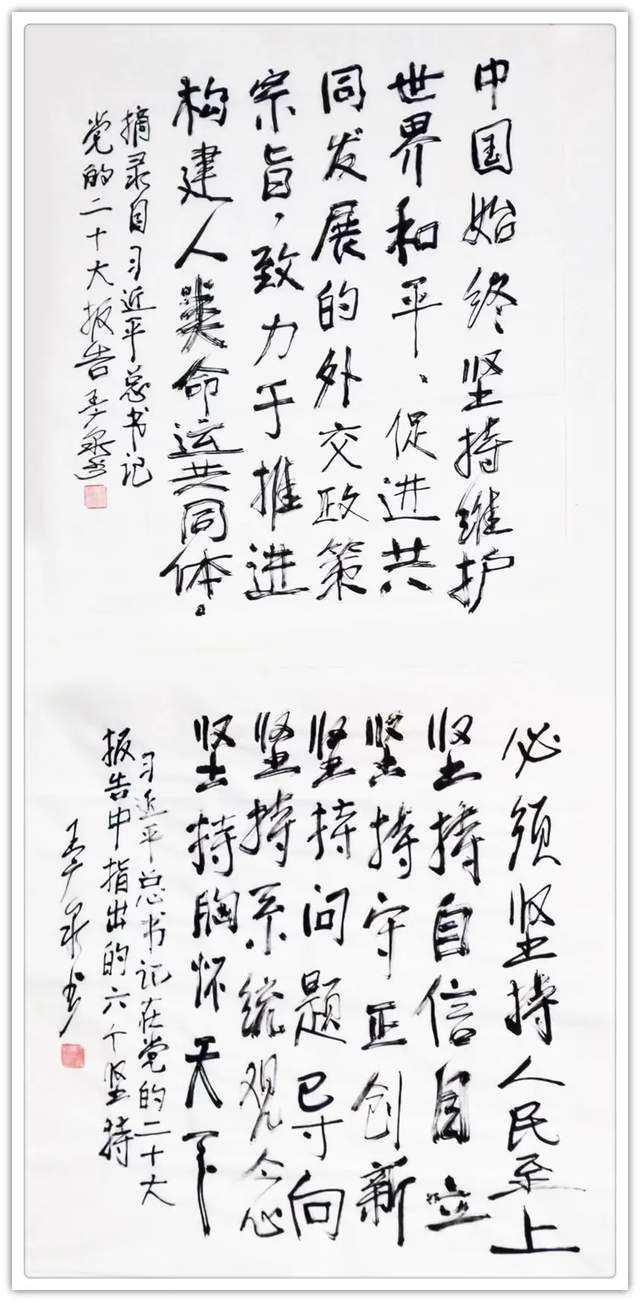 中国始终坚持维护
世界和平、促进共
同发展的外交政策
宗旨，致力于推进
构建人类命运共同体。
摘录自习近平总书记
党的二十大报告
必须坚持人民至上
坚持自信自立
坚持守正创新
坚持问题导向
坚持系统观念
坚持胸怀天下
习近平总书记在党的二十大
报告中指出的六个坚持
王广泉书